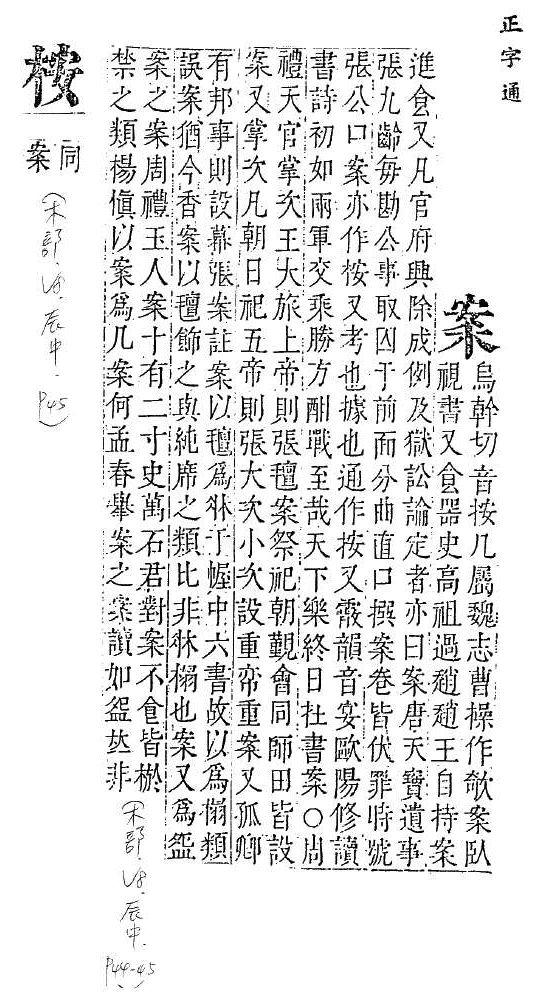 正字通
案
烏幹切音按几屬魏志曹操作欹案臥
視書又食器史高祖過趙趙王自持案
進食又凡官府興除成例及獄訟論定者亦曰案唐天寶遺事
張九齡每勘公事取囚于前而分曲直口撰案卷皆伏罪時號
張公口案亦作桉又考也據也通作按又霰韻音宴歐陽修讀
書詩初如兩軍交乘勝方酣戰至哉天下樂終日社書案○周
禮天官掌次王大旅上帝則張氊案祭祀朝覲會同師田皆設
案又掌次凡朝日祀五帝則張大次小次設重帟重案又孤卿
有邦事則設幕張案註案以氊爲牀于幄中六書故以爲榻類
誤案猶今香案以氊飾之與純席之類比非牀榻也案又爲盌
案之案周禮玉人案十有二寸史萬石君對案不食皆棜
禁之類楊愼以案爲几案何孟春舉案之案讀如盌𠀤非
(木部,V8,辰中,P44-45)
桉
同
案
(木部,V8,辰中,P45)